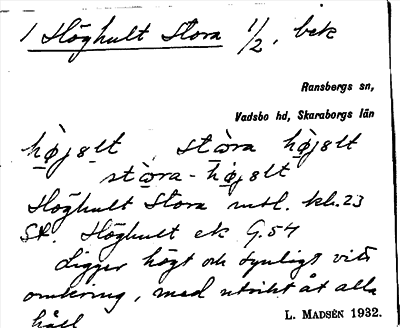 1 Höghult Stora 1/2, bek
Ransbergs sn,
Vadsbo hd, Skaraborgs län
hø̀jsl̥t, stɷ̀ra hø̀jsl̥t
stɷ̀ra-hø̀jsl̥t
Höghult Stora mtl. kl. 23
SK. Höghult ek G.54
Ligger högt och synligt vitt
omkring, med utsikt åt alla
håll
L. MADSÉN 1932.